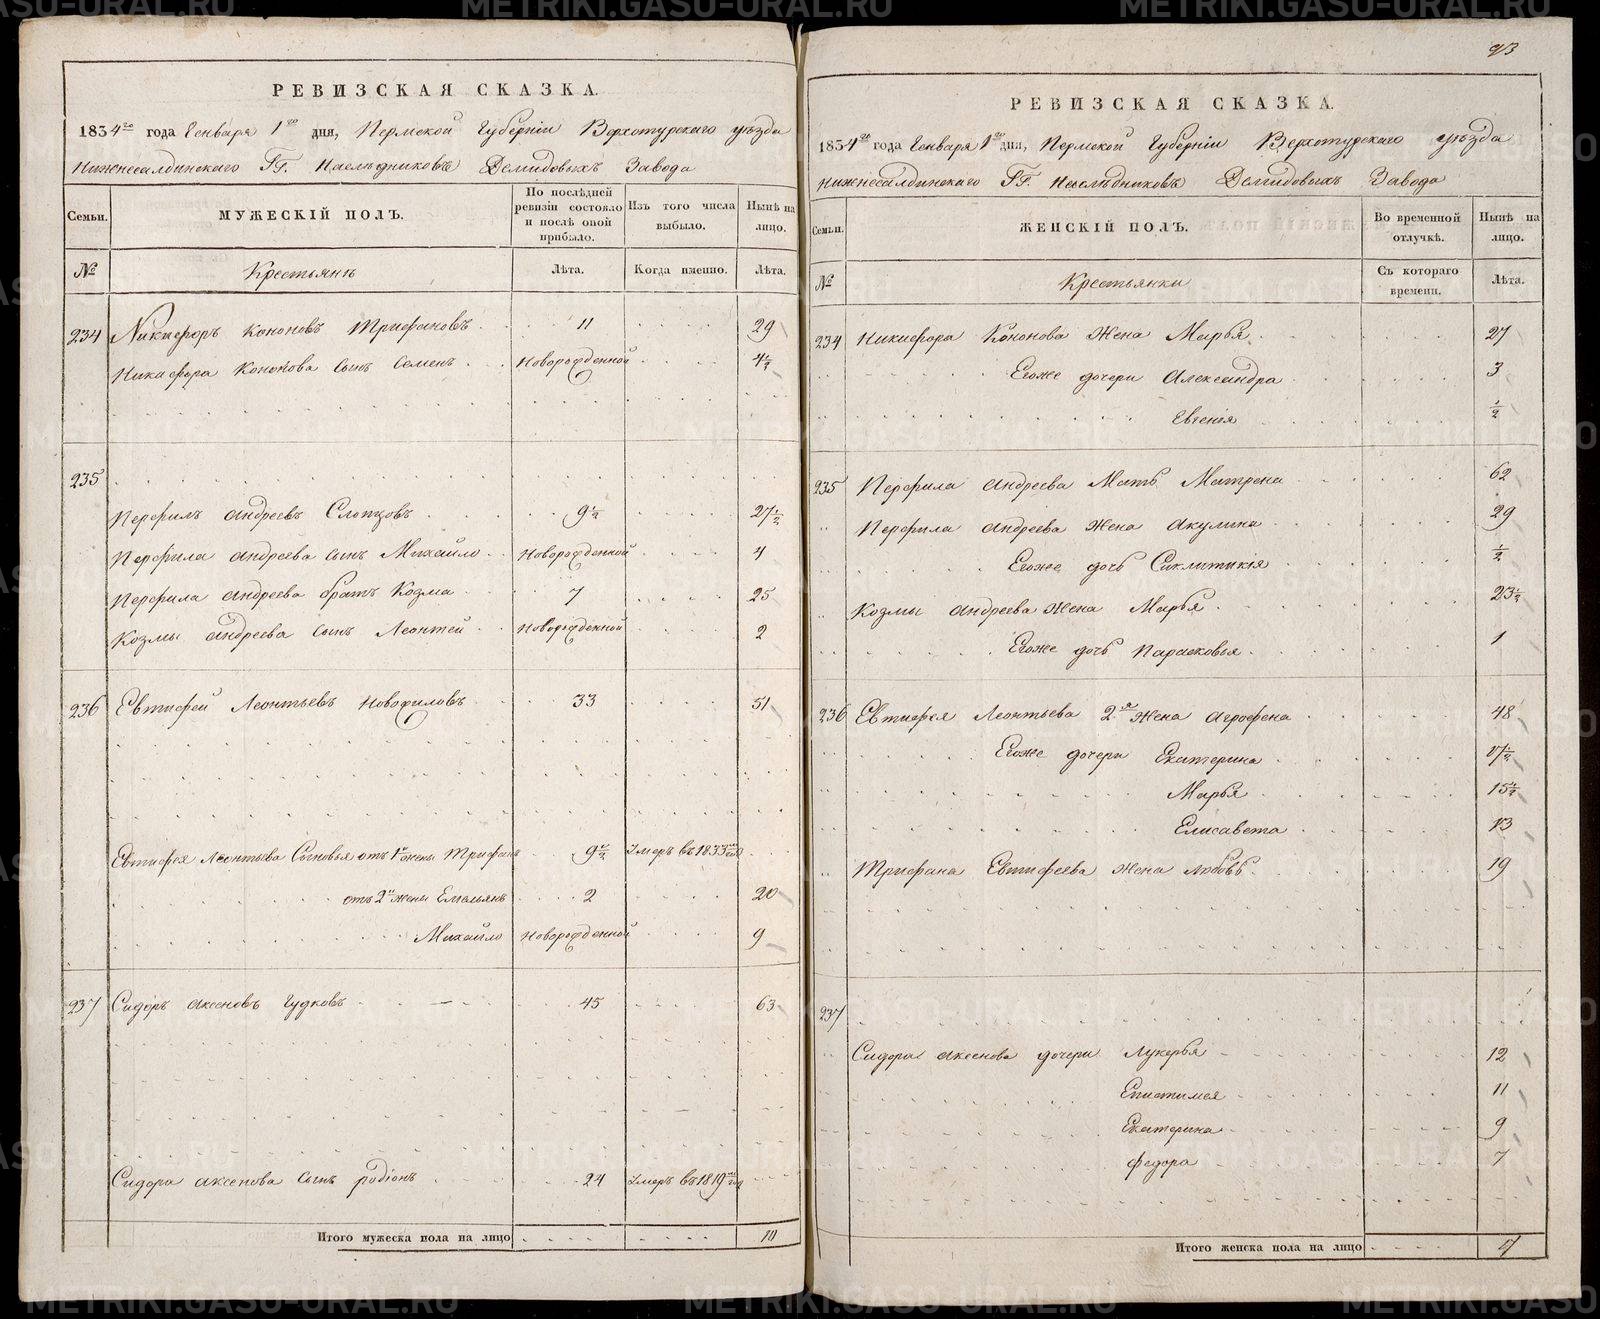 РЕВИЗСКАЯ СКАЗКА.
1834го года Генваря 1го дня, Пермской Губерніи Верхотурскаго уѣзда
Нижнесалдинскаго ГГ. Наслѣдниковъ Демидовыхъ Завода
Семьи. МУЖЕСКІЙ ПОЛЪ. По послѣдней ревизіи состояло и послѣ оной прибыло. Изъ того числа выбыло. Нынѣ на лицо.
№ Крестьянъ Лѣта. Когда именно. Лѣта.
234 Никифоръ Кононовъ Трифановъ 11 29
Никифора Кононова сынъ Семенъ Новорожденной 4½
235
Перфилъ Андреевъ Слопцовъ 9½ 27½
Перфила Андреева сынъ Михайло Новорожденной 4
Перфила Андреева братъ Козма 7 25
Козмы Андреева сынъ Леонтей Новорожденной 2
236 Евтифей Леонтьевъ Новофиловъ 33 51
Евтифея Леонтьева Сыновья отъ 1й жены Трифанъ 9½ Умеръ въ 1833мъ году
отъ 2й жены Емельянъ 2 20
Михайло Новорожденной 9
237 Сидоръ Аксеновъ Гудковъ 45 63
Сидора Аксенова сынъ Родіонъ 24 Умеръ въ 1819мъ году
Итого мужеска пола на лицо 10
93
РЕВИЗСКАЯ СКАЗКА.
1834го года Генваря 1го дня, Пермской Губерніи Верхотурскаго уѣзда
Нижнесалдинскаго ГГ. Наслѣдниковъ Демидовыхъ Завода
Семьи. ЖЕНСКІЙ ПОЛЪ. Во временной отлучкѣ. Нынѣ на лицо.
№ Крестьянки Съ котораго времени. Лѣта.
234 Никифора Кононова жена Марья 27
Егоже дочери Александра 3
Евгенія ½
235 Перфила Андреева Мать Матрена 62
Перфила Андреева жена Акулина 29
Егоже дочь Сиклитикія ½
Козмы Андреева жена Марья 23½
Егоже дочь Парасковья 1
236 Евтифея Леонтьева 2я жена Агрофена 48
Егоже дочери Екатерина 17½
Марья 15½
Елисавета 13
Трифана Евтифеева жена Любовь 19
237
Сидора Аксенова дочери Лукерья 12
Епистимея 11
Екатерина 9
Федора 7
Итого женска пола на лицо
METRIKI.GASO-URAL.RU